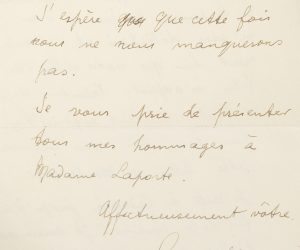 J'espère que que cette fois
nous ne nous manquerons
pas.
Je vous prie de présenter
tous mes hommages à
Madame Laporte.
Affectueusement vôtre